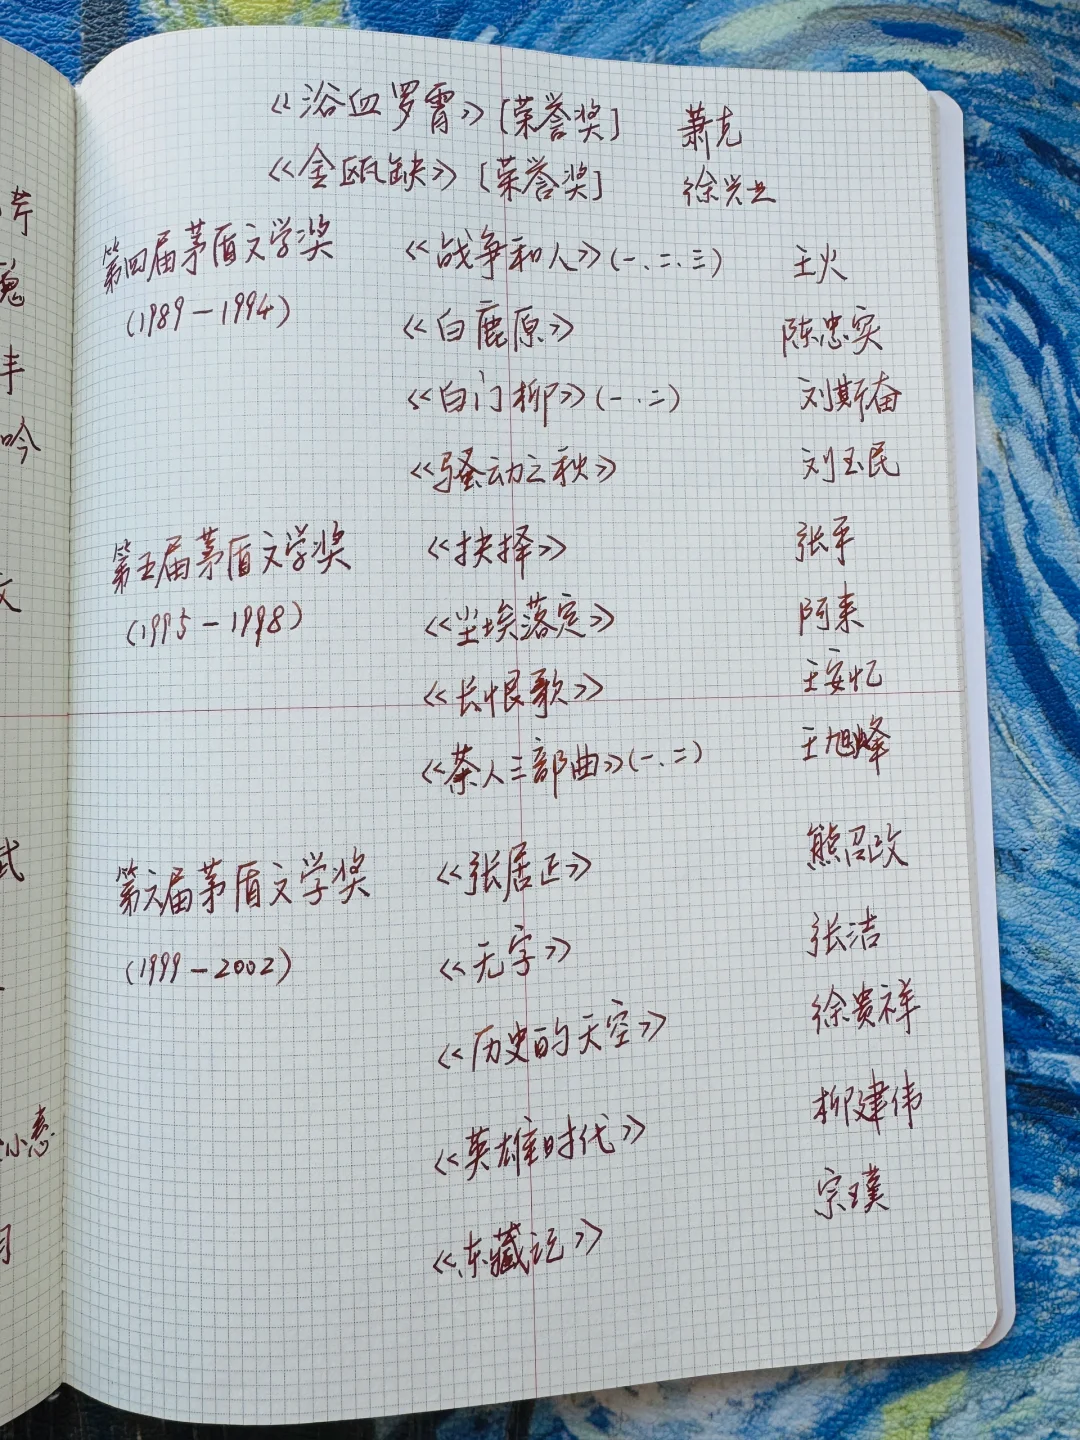 《浴血罗霄》[荣誉奖] 萧克
《金瓯缺》[荣誉奖] 徐兴业
第四届茅盾文学奖 《战争和人》(一、二、三) 王火
(1989-1994) 《白鹿原》 陈忠实
《白门柳》(一、二) 刘斯奋
《骚动之秋》 刘玉民
第五届茅盾文学奖 《抉择》 张平
(1995-1998) 《尘埃落定》 阿来
《长恨歌》 王安忆
《茶人三部曲》(一、二) 王旭峰
第六届茅盾文学奖 《张居正》 熊召政
(1999-2002) 《无字》 张洁
《历史的天空》 徐贵祥
《英雄时代》 柳建伟
《东藏记》 宗璞